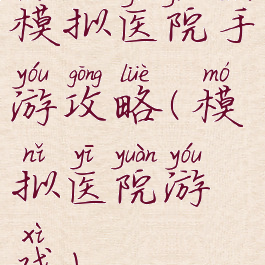 模拟医院手
yóu gōng lüè mó
游攻略(模
nǐ yī yuàn yóu
拟医院游
xì
戏)